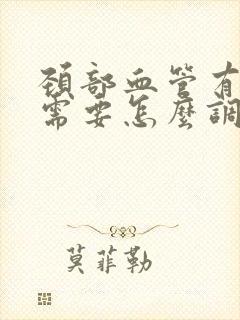 頸部血管有
需要怎麼調
莫菲勒